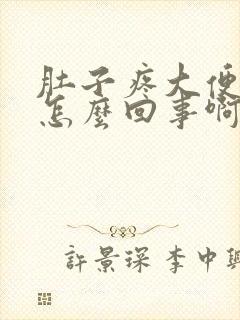 肚子疼大便
怎麼回事啊
許景琛 李中興